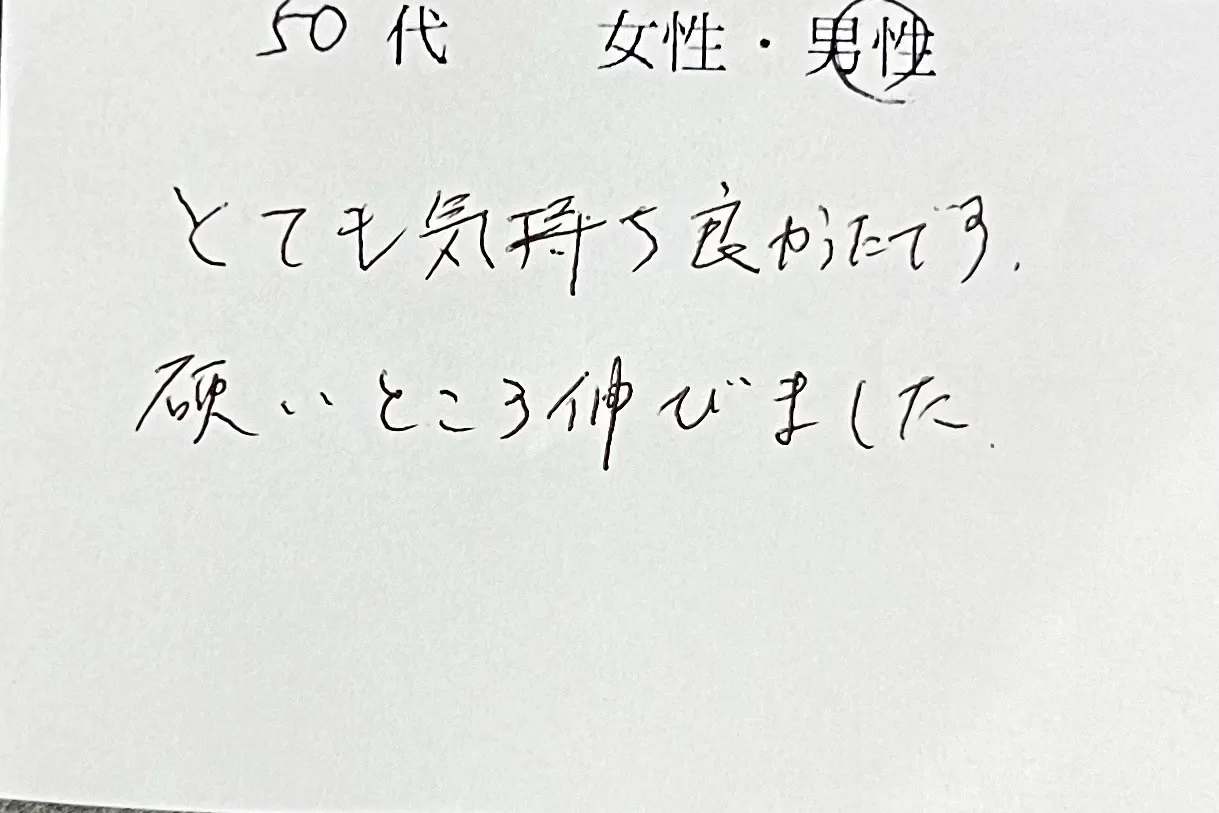 50 代 女性・男性
とても気持ち良かったです.
硬いところ伸びました.